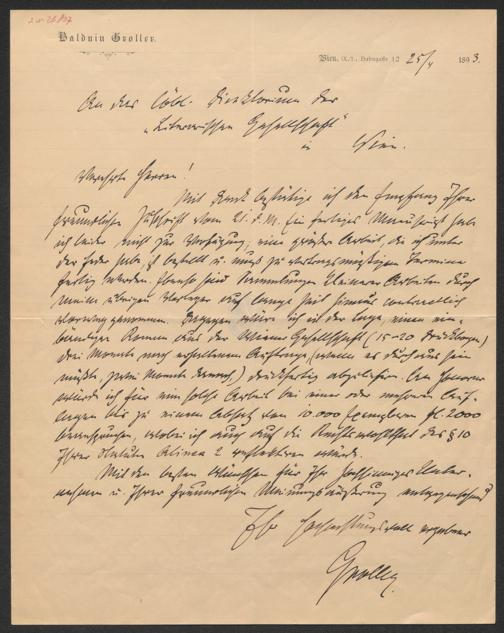 Balduin Groller.
Wien, IX./1., Hahngasse 12 25/4 1893.
An das löbl. Direktorium der
„Literarischen Gesellschaft“
in Wien.
Verehrte Herren!
Mit Dank bestätige ich den Empfang Ihrer
freundlichen Zuschrift vom 21. d. M. Ein fertiges Manuscript habe
ich leider nicht zur Verfügung; eine größere Arbeit, die ich unter
der Feder habe, ist bestellt u. muß zu vertragsmäßigem Termine
fertig werden. Ebenso sind Sammlungen kleinerer Arbeiten durch
meine übrigen Verleger auf lange Zeit hinaus contractlich
vorweg genommen. Dagegen wäre ich in der Lage, einen ein-
bändigen Roman aus der Wiener Gesellschaft (15-20 Druckbogen)
drei Monate nach erhaltenem Auftrage, (wenn es durchaus sein
müßte, zwei Monate darnach) druckfertig abzuliefern. An Honorar
würde ich für eine solche Arbeit bei einer oder mehreren Auf-
lagen bis zu einem Absatz von 10.000 Exemplaren fl. 2000
beanspruchen, wobei ich auch auf die Rechtswohlthat des § 10
Ihrer Statuten Alinea 2 reflektiren würde.
Mit den besten Wünschen für Ihr hochsinniges Unter-
nehmen u. Ihrer freundlichen Meinungsäußerung entgegensehend
Ihr hochachtungsvoll ergebener
Groller.